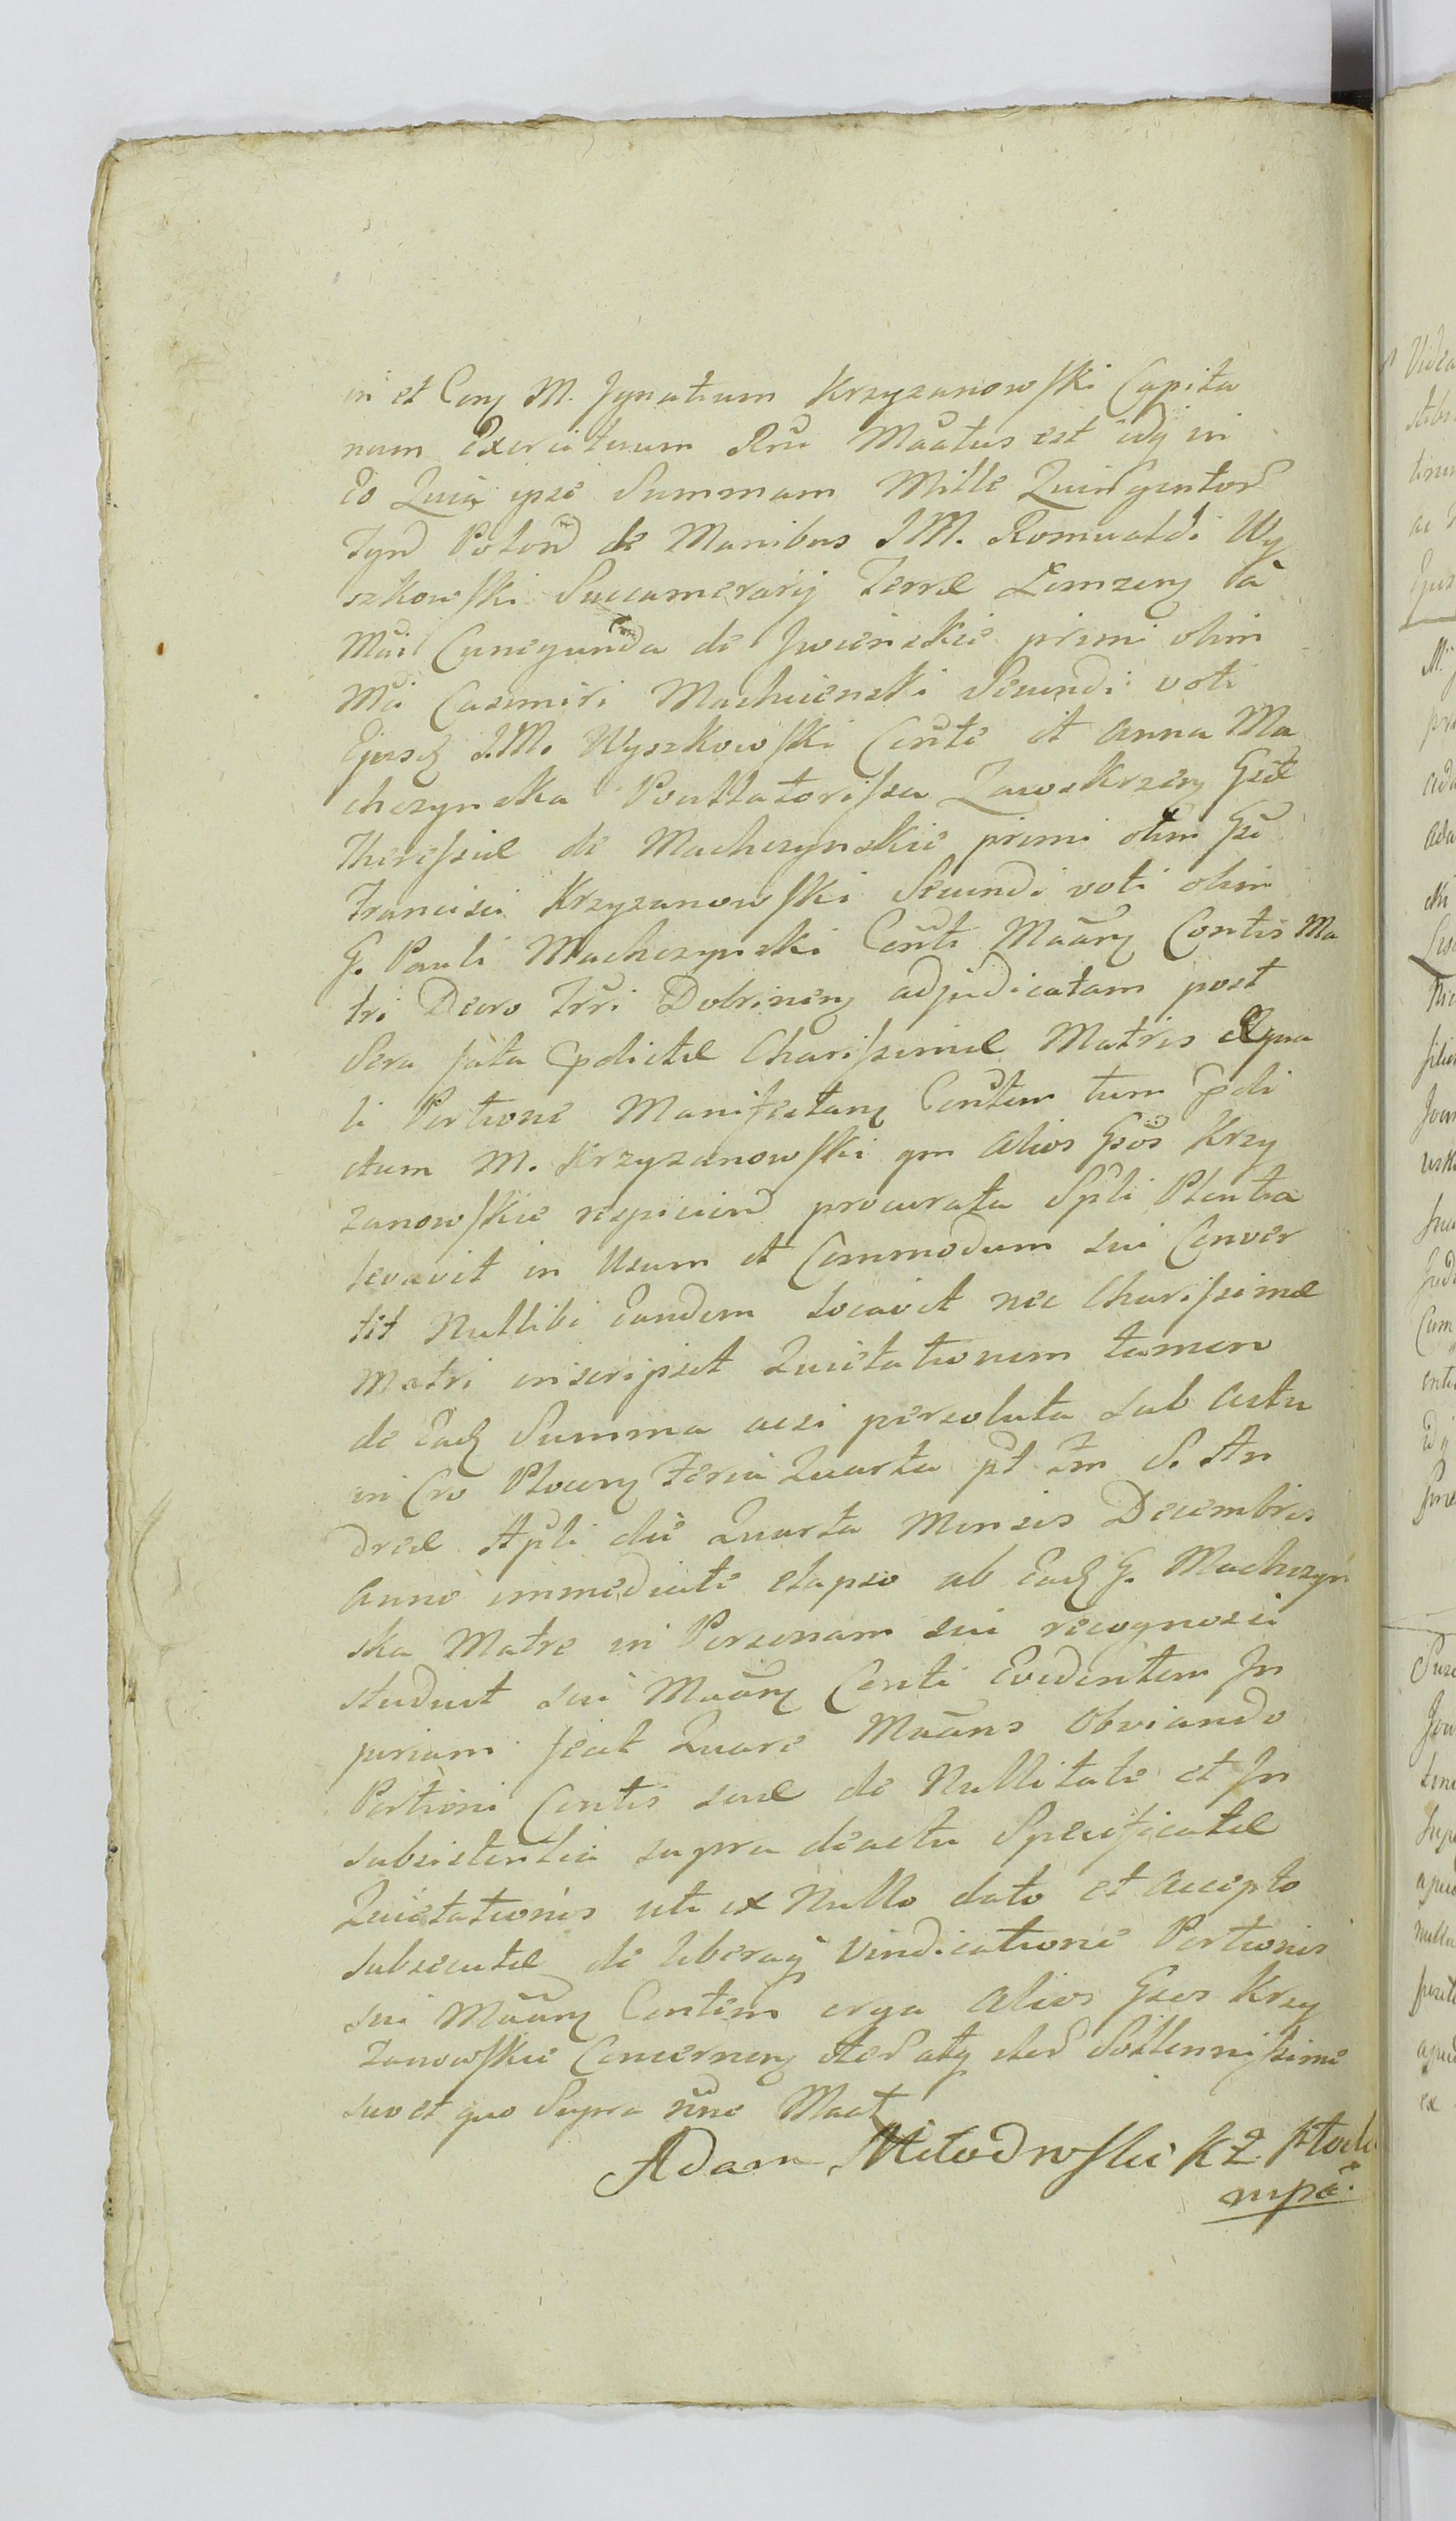 in et Conɜ M. Ignatium Krzyzanowski Capita
neum Exercituum Rni Maatus est idɜ in
Eo Quia ipse Summam Mille Quingentor
Tyn Polon de Manibus JM. Romualdi Wy
szkowski Succamerarij Terræ Lomzenɜ a
Mci Cunegunda de Iwienskie primi olim
Mci Casimiri Machcienski Secundi voti
Ejusdɜ J.M. Wyszkowski Conte et Anna Ma
chczynska Pocillatorissa Zawskrzenɜ Gsæ
Theressiæ de Machczynskie primi olim Gsi
Francisci Krzyzanowski Secundi voti olim
G. Pauli Machczynski Conti Maanɜ Contis Ma
tri Decro Trri Dobrinenɜ adjudicatam post
Sera fata pdictæ Charissimæ Matris Æqua
li Portione Manifestanɜ Conten tum pdi
ctum M. Krzyzanowski qm alios Gsos Krzy
zanowskie respicien procurata Spli Plentia
levavit in Usum et Commodum sui Conver
tit Nullibi Eandem locavit nec Charissimæ
Matri inscripsit Quietationem tamen
de Eadɜ Summa acsi persoluta sub actu
in Cro Plocenɜ Feria Quarta pt Fm S. An
dreæ Apli die Quarta Mensis Decembris
Anno immediate elapso ab Eadɜ G. Machczyn
ska Matre in Personam sui recognosci
studuit sui Maanɜ Conti Evidentem In
juriam fecit Quare Maans Obviando
Portioni Contis suæ de Nullitate et In
subsistentia supra deactu Specificatæ
Quietationis uti ex Nullo dato et accepto
Subsecutæ de liberaqɜ Vindicatione Portionis
sui Maanɜ Contem erga alios Gsos Krzy
zanowskie Concernenɜ iter atqɜ iter Sollennissime
suo et quo Supra nne Maat
Adam Młodwski KZ Płocki
mpa.